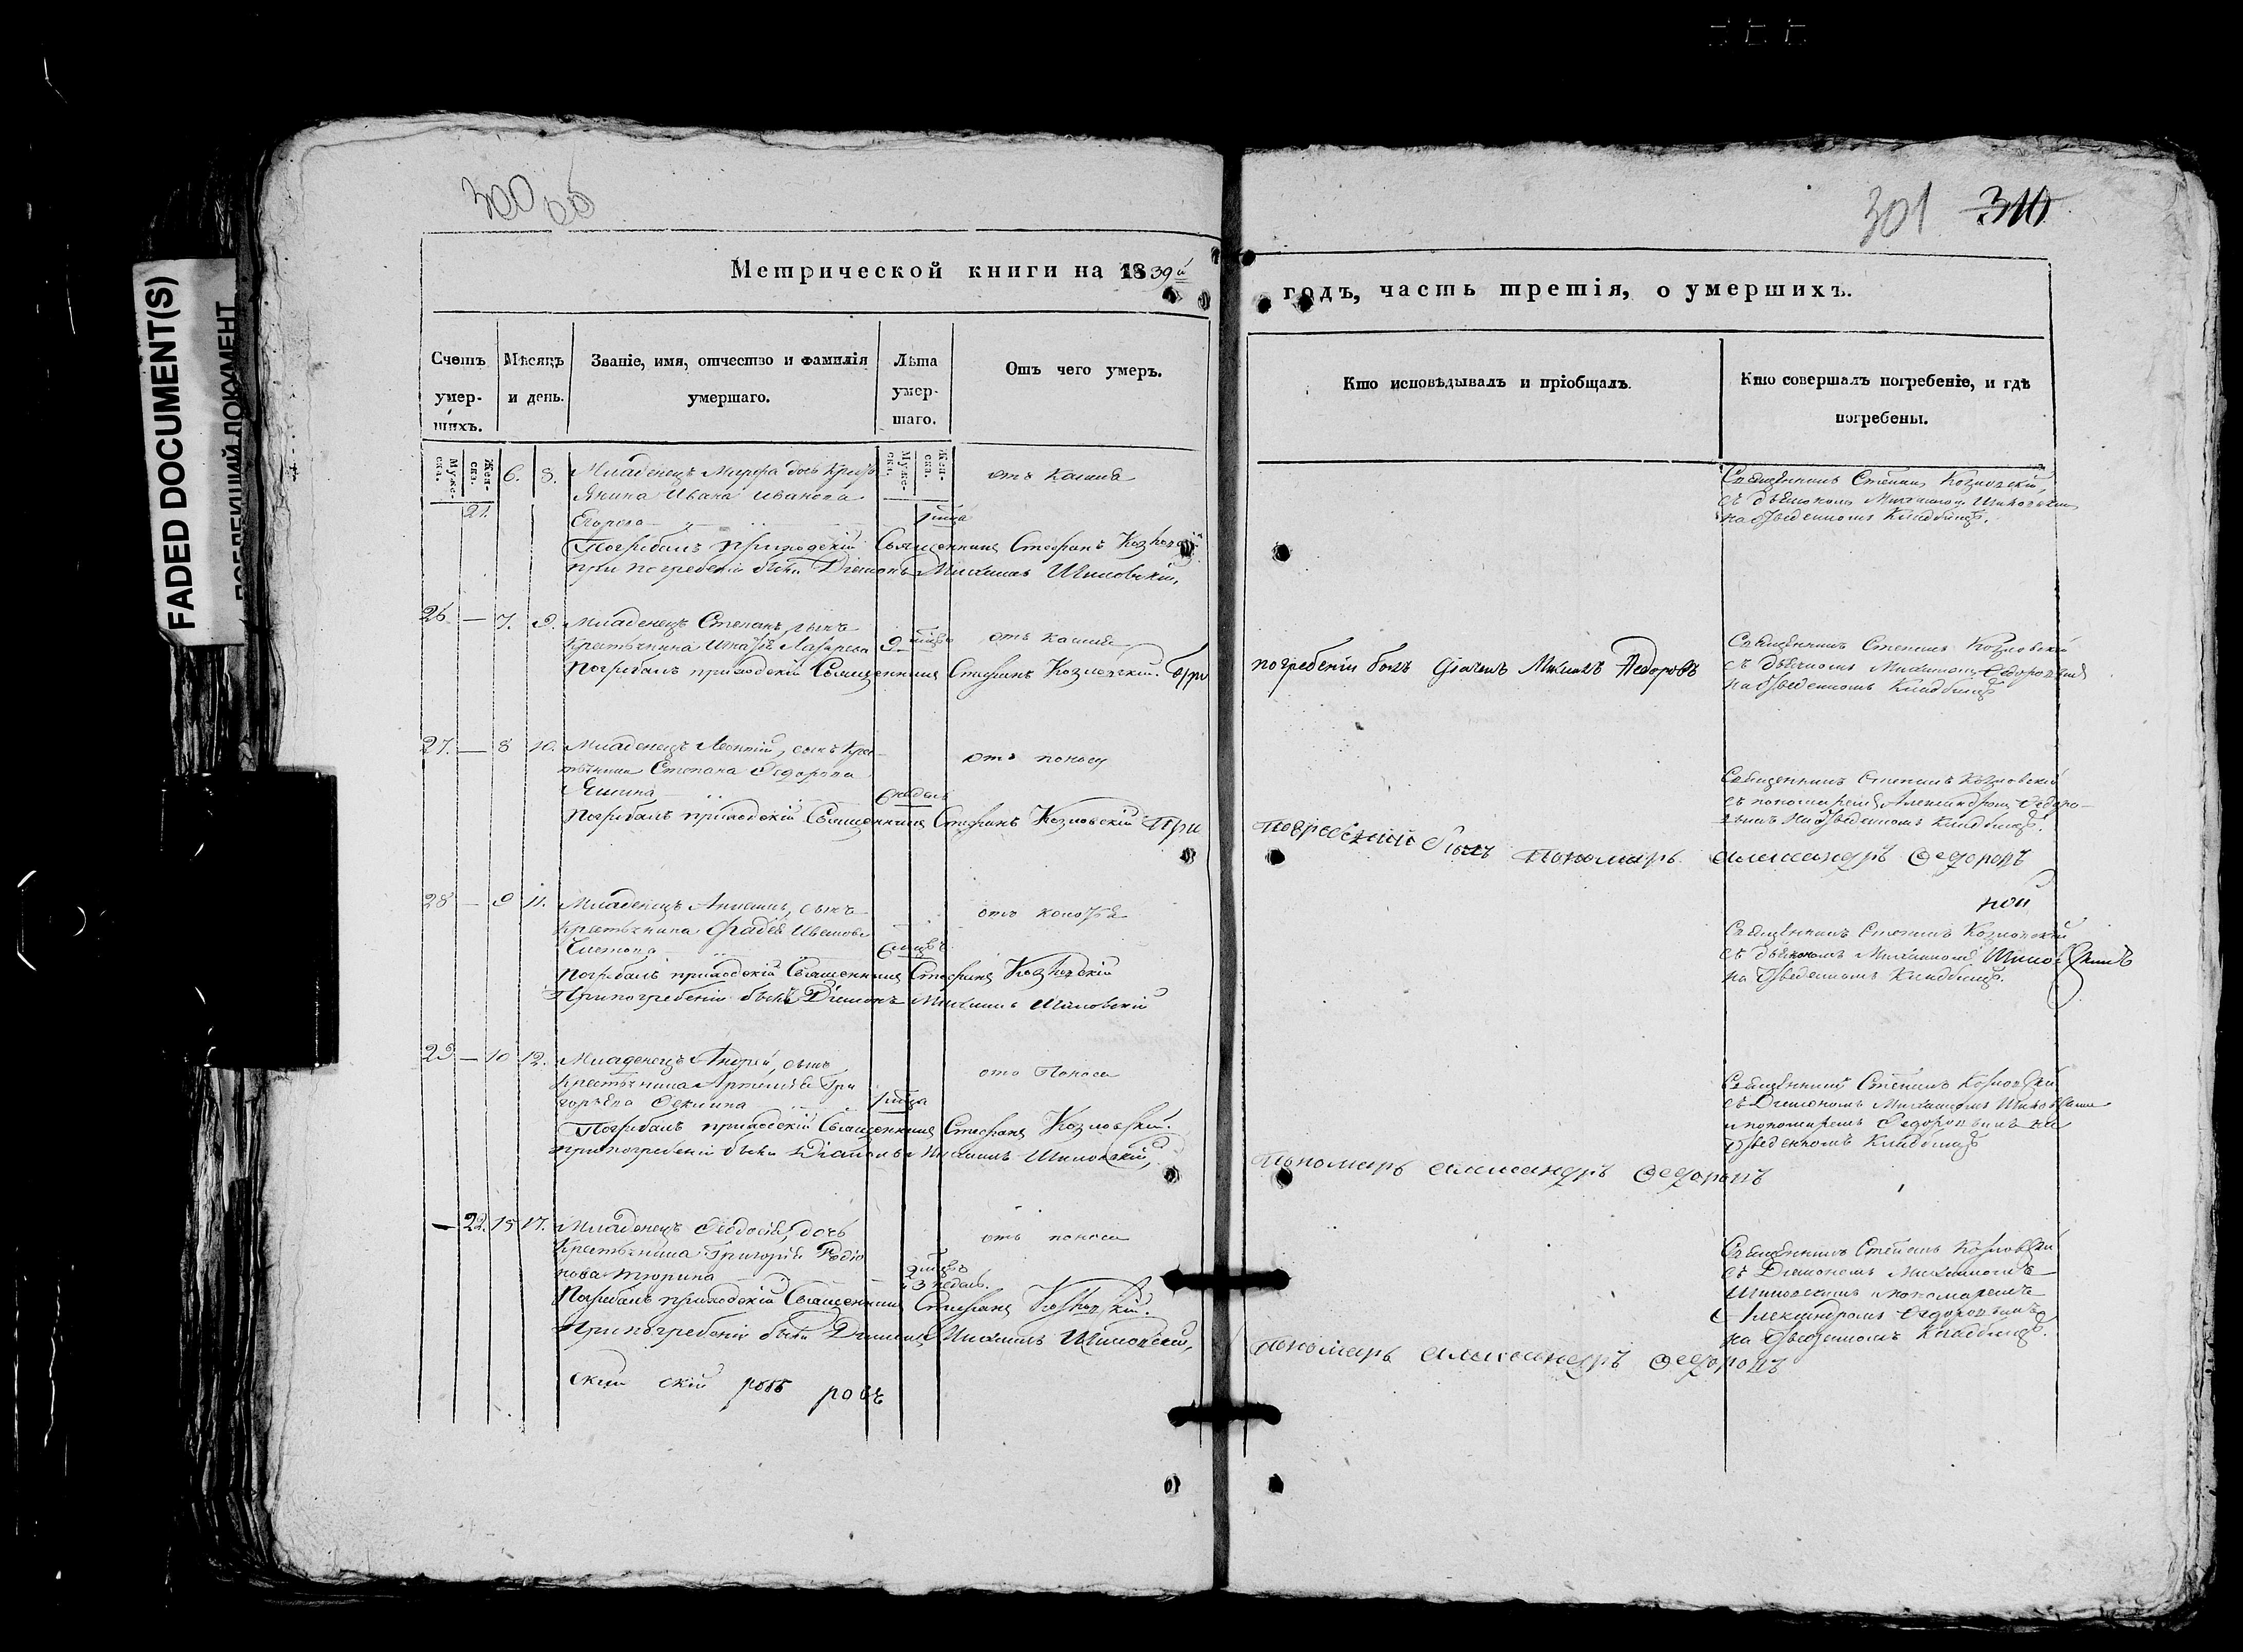 300 об
301 310
FADED DOCUMENT(S)
ПОБЛЕКШИЙ ДОКУМЕНТ
Метрической книги на 1839й
годъ, часть третія, о умершихъ.
Счетъ умер-шихъ.
Мѣсяцъ и день.
Званіе, имя, отчество и фамилія умершаго.
Лѣта умер-шаго.
Отъ чего умеръ.
Кто исповѣдывалъ и пріобщалъ.
Кто совершалъ погребеніе, и гдѣ погребены.
Муже-ска.
Жен-ска.
Муже-ска.
Жен-ска.
21. 6. 8. Младенецъ Марфа дочь крестъ
янина Ивана Иванова
Егорова
отъ кашля
Погребалъ приходскій Священникъ Стефанъ Козловскій
при погребеніи былъ Діаконъ Михаилъ Шиловскій,
Священникъ Стефанъ Козловскій,
съ дьякономъ Михаиломъ Шиловскимъ
на отведенномъ кладбищѣ.
26. — 7. 9. Младенецъ Степанъ, сынъ
крестьянина Игнатія Лазарева
9 мѣсѣ
отъ кашля
Погребалъ приходскій Священникъ Стефанъ Козловскій. При
погребеніи былъ Михаилъ Федоровъ
Священникъ Стефанъ Козловскій
на отведенномъ кладбищѣ
27. — 8 10. Младенецъ Леонтій, сынъ кре
стьянина Степана Федорова
6 недѣль
отъ поносу
Погребалъ приходскій Священникъ Стефанъ Козловскій При
погребеніи былъ Пономарь Александръ Федоровъ
Священникъ Стефанъ Козловскій
съ пономаремъ Александромъ Федоро-
вымъ на отведенномъ кладбищѣ.
28 — 9 11. Младенецъ сынъ
крестьянина Фадея Иванова
Погребалъ приходскій Священникъ Стефанъ Козловскій
При погребеніи былъ Діаконъ Михаилъ Шиловскій
Священникъ Стефанъ Козловскій
съ дьякономъ Михаиломъ Шиловскимъ
на отведенномъ кладбищѣ.
29 — 10 12. Младенецъ Андрей, сынъ
крестьянина Артемія Гри
горьева
отъ поноса
Погребалъ приходскій Священникъ Стефанъ Козловскій.
При погребеніи былъ Діаконъ Михаилъ Шиловскій,
Пономарь Александръ Федоровъ
Священникъ Стефанъ Козловскій
съ Діакономъ Михаиломъ Шиловскимъ
и пономаремъ Федоровымъ на
отведенномъ кладбищѣ
— 22. 15 17. Младенецъ Феодосія, дочь
крестьянина Григорія Родіо
нова Тюрина
и 3 недѣль.
отъ поноса
Погребалъ приходскій Священникъ Стефанъ Козловскій.
При погребеніи былъ Діаконъ Михаилъ Шиловскій,
Пономарь Александръ Федоровъ
Священникъ Стефанъ Козловскій
съ Діакономъ Михаиломъ
Шиловскимъ пономаремъ
Александромъ Федоровымъ
на отведенномъ кладбищѣ.
скій скій ровъ ровъ